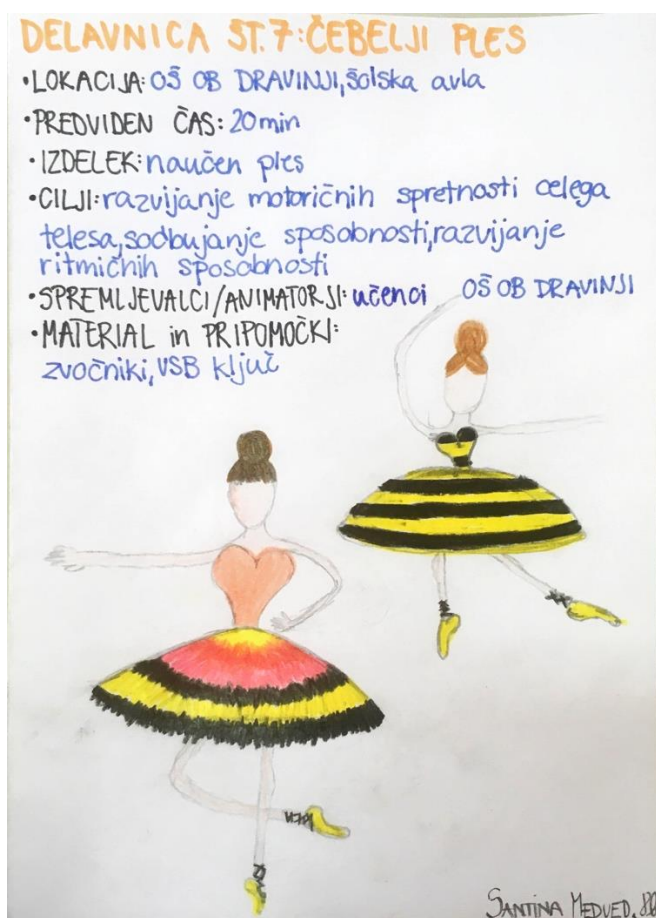 DELAVNICA ŠT.7:ČEBELJI PLES
•LOKACIJA: OŠ OB DRAVINJI, šolska avla
•PREDVIDEN ČAS: 20min
•IZDELEK: naučen ples
•CILJI: razvijanje motoričnih spretnosti celega
telesa, sodbujanje sposobnosti, razvijanje
ritmičnih sposobnosti
•SPREMLJEVALCI/ANIMATORJI: učenci OŠ OB DRAVINJI
•MATERIAL in PRIPOMOČKI:
zvočniki, VSB ključ
SANTINA MEDVED,